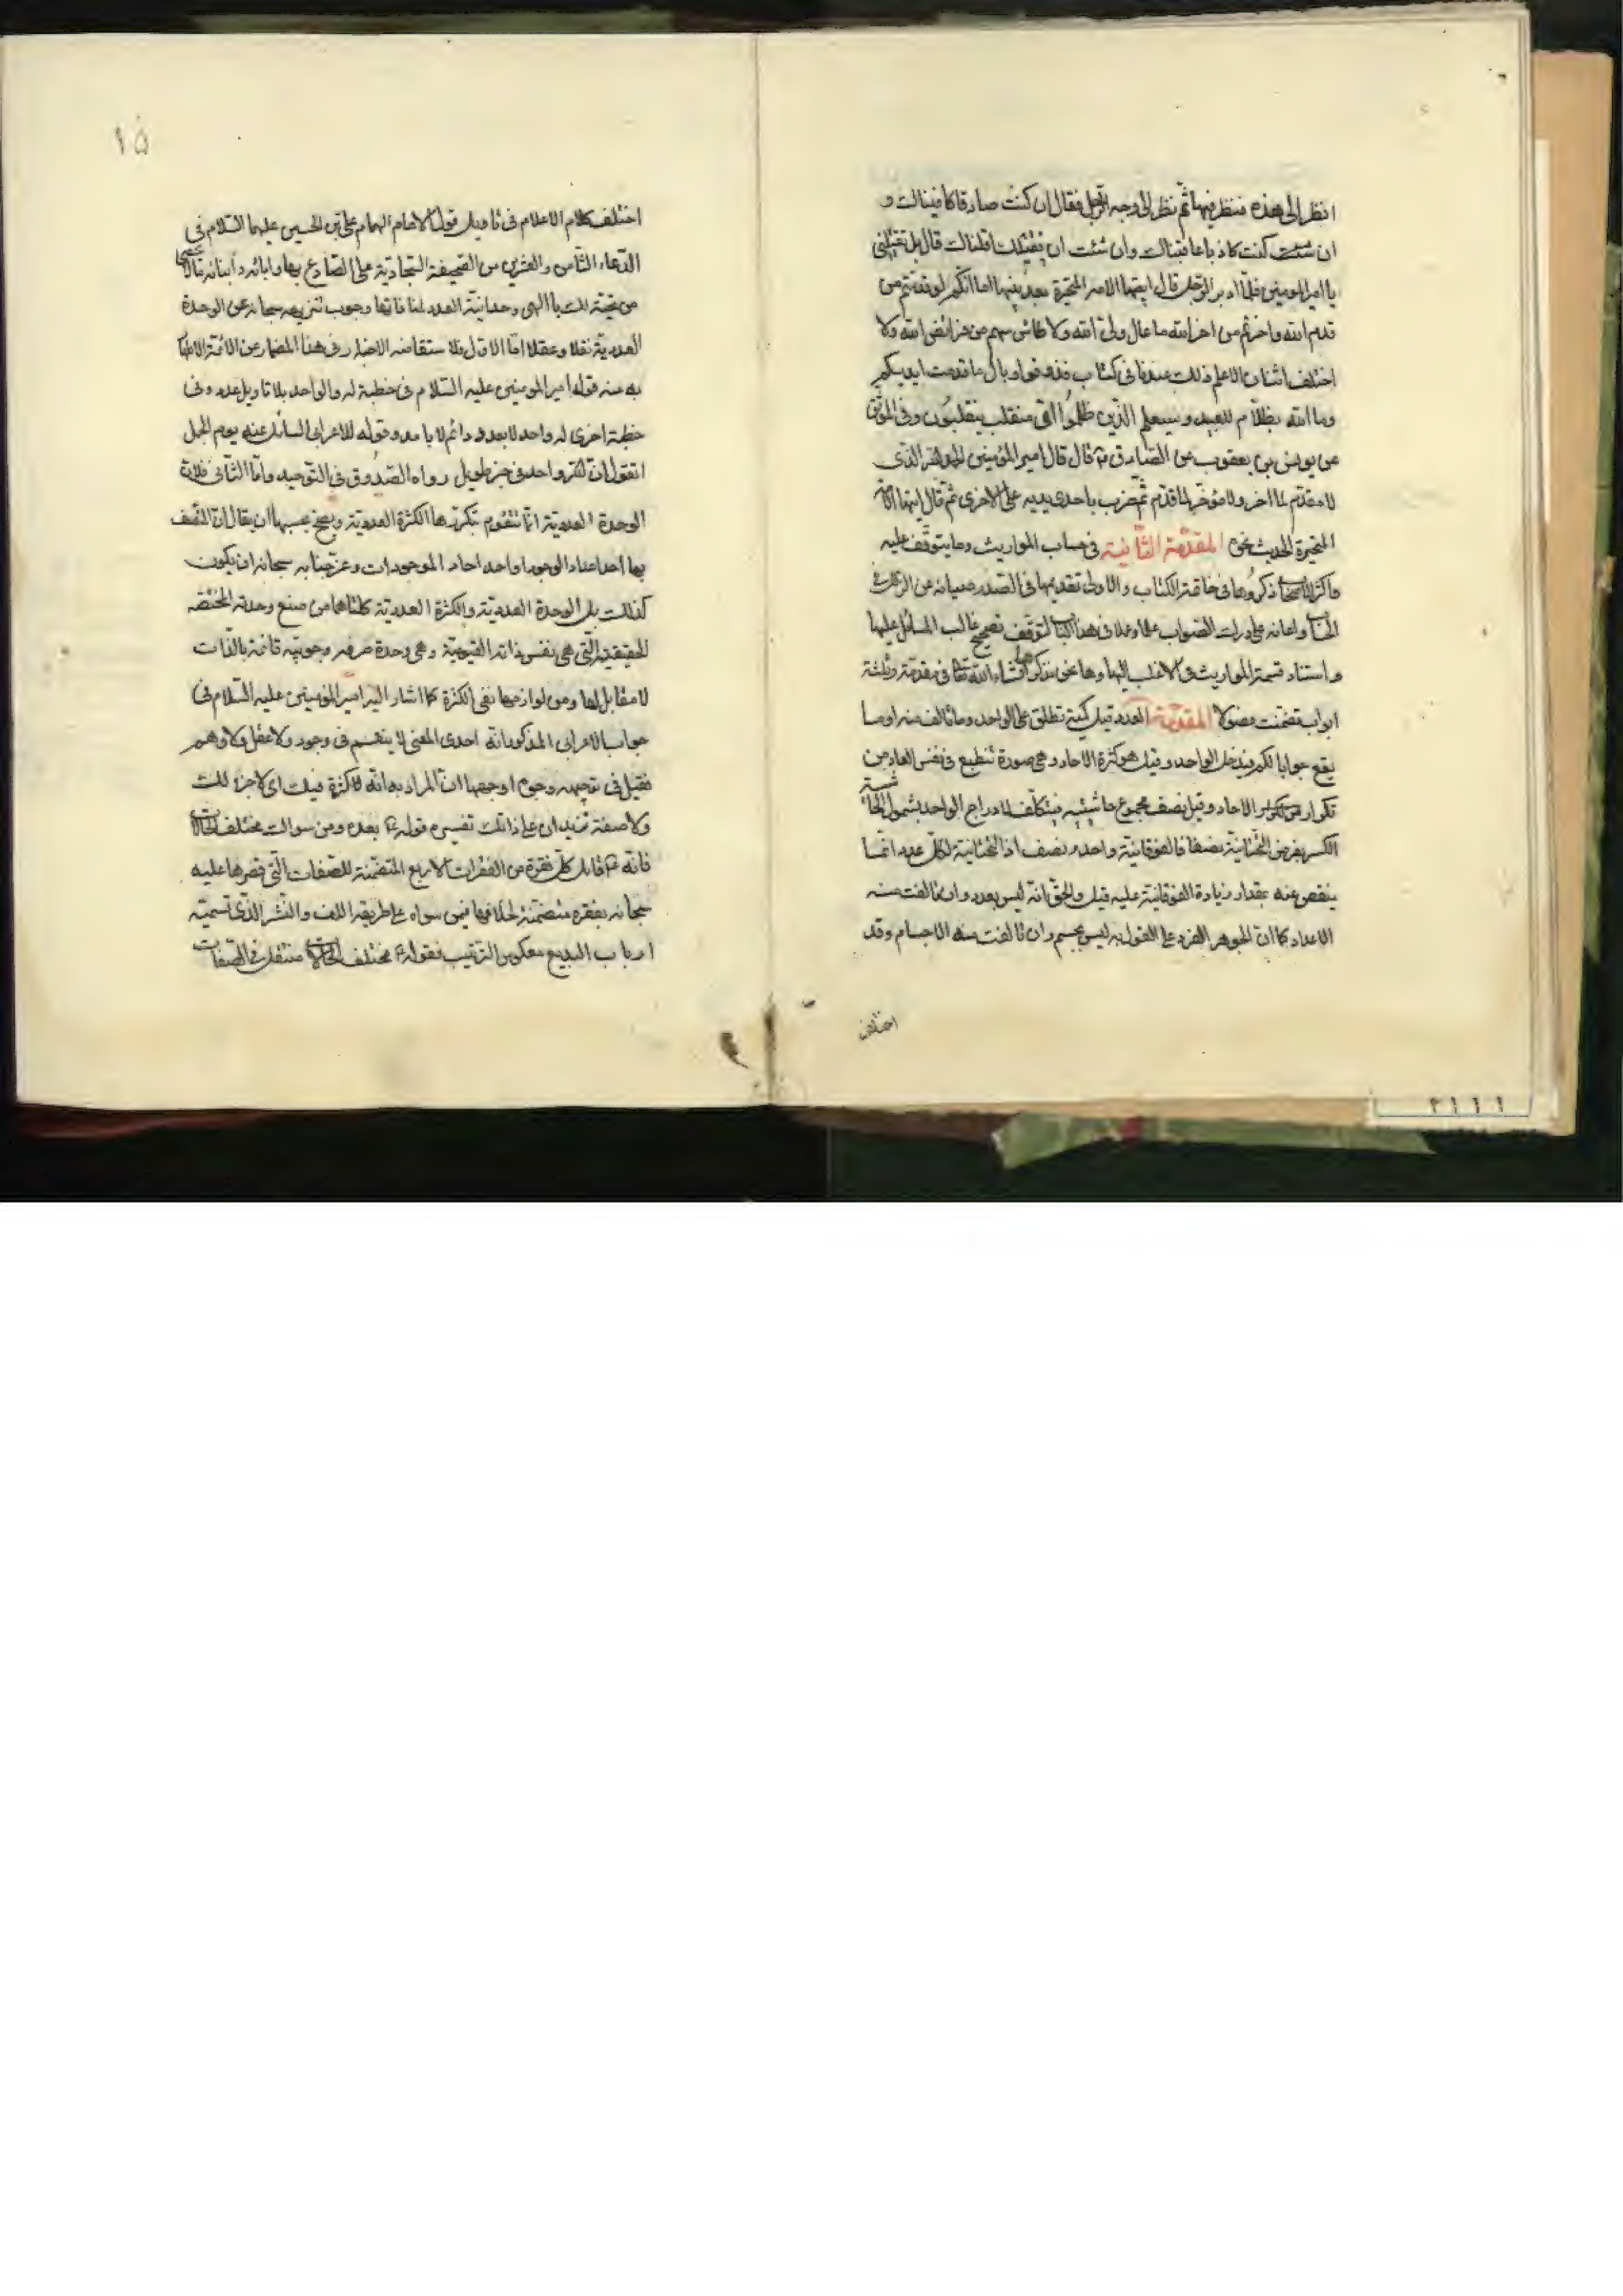 انظر الى هذه فنظر فيها ثم نظر الى وجه الرجل فقال ان كنت صادقا كافيناك و
ان كنت كاذبا عاقبناك وان شئت ان نقيلك اقلناك قال بل تقيلنى
يا امير المومنين فلما ادبر الرجل قال ايتها الامة المتحيرة بعد نبيها اما انكم لو قدمتم من
قدم الله واخرتم من اخر الله ما عال ولى الله ولا طاش سهم من فرائض الله ولا
اختلف اثنان الا علم ذلك عندنا فى كتاب فذوقوا وبال ما قدمت ايديكم
وما الله بظلام للعبيد وسيعلم الذين ظلموا اى منقلب ينقلبون وفى الموثق
عن يونس بن يعقوب عن الصادق ع قال قال امير المؤمنين الحمد لله الذى
لا مقدم لما اخر ولا مؤخر لما قدم ثم ضرب باحدى يديه على الاخرى ثم قال ايتها الامة
المتحيرة الحديث نحوه المقدمة الثانية فى حساب المواريث وما يتوقف عليه
واكثر الاصحاب ذكروها فى خاتمة الكتاب والاولى تقديمها فى الصدر صيانه عن
واعانه على درك الصواب علما وعملا فى هذا الكتاب لتوقف تصحيح غالب المسائل عليها
واستناد قسمة المواريث فى الاغلب اليها وها نحن نذكرها انشاء الله تعالى فى مقدمة وثلثة
ابواب تضمنت فصولا المقدمة العدد قيل كمية تطلق على الواحد وما تالف منه او ما
يقع جوابا لكم فيدخل الواحد وقيل هو كثرة الاحاد وهى صورة تنطبع فى نفس العاد من
تكرار الاحاد وقيل نصف مجموع حاشيتيه فيتكلف لادراج الواحد بشمول الحاشية
الكسر بفرض التحتانية نصفا فالفوقانية واحد ونصف اذ التحتانية لكل عدد انما
ينقص عنه بمقدار زيادة الفوقانية عليه قيل والحق انه ليس بعدد وان تالفت منه
الاعداد كما ان الجوهر الفرد على القول به ليس بجسم وان تالفت منه الاجسام وقد
اختلف
١٥
اختلف كلام الاعلام فى تاويل قول الامام الهمام على بن الحسين عليهما السلام فى
الدعاء الثامن والعشرين من الصحيفة السجادية على الصادع بها وابائه وابنائه
لك يا الهى وحدانية العدد لمنافاتها وجوب تنزيهه سبحانه عن الوحدة
العددية نقلا وعقلا اما الاول فلاستفاضه الاخبار فى هذا المضمار عن الائمة الاطهار
منه قوله امير المومنين عليه السلام فى خطبة له والواحد بلا تاويل عدد وفى
خطبة اخرى له واحد لا بعدد دائم لا بامد وقوله للاعرابى السائل عنه يوم الجمل
اتقول ان الله واحد فى خبر طويل رواه الصدوق فى التوحيد واما الثانى فلان
الوحدة العددية انما تتقوم بتكررها الكثرة العددية ويصح بحسبها ان يقال ان المتصف
بها احد اعداد الوجود او احد احاد الموجودات وعز جنابه سبحانه ان يكون
كذلك بل الوحدة العددية والكثرة العددية كلتاهما من صنع وحدته المختصه
الحقيقية التى هى نفس ذاته القيومية وهى وحدة صرفه وجوبيه قائمة بالذات
لا مقابل لها ومن لوازمها نفى الكثرة كما اشار اليه امير المؤمنين عليه السلام فى
جواب الاعرابى المذكور انه احدى المعنى لا ينقسم فى وجود ولا عقل ولا وهم
فقيل فى توجيهه وجوه اوجهها ان المراد به انه لا كثرة فيك اى لا جزء لك
ولا صفة تزيدان على ذاتك تفسيره قوله ع بعده ومن سواك مختلف الحالات
فانه ع قابل كل فقرة من الفقرات الاربع المتضمنة للصفات التى قصرها عليه
سبحانه بفقره متضمنة لخلافها فيمن سواه على طريقه اللف والنشر الذى تسميه
ارباب البديع معكوس الترتيب فقوله ع مختلف الحالات متنقل فى الصفات